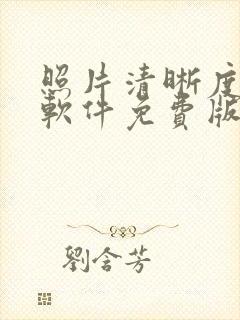 照片清晰度
軟件免費版
劉含芳